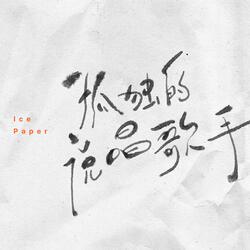 Ice
Paper
孤独的
说唱歌手